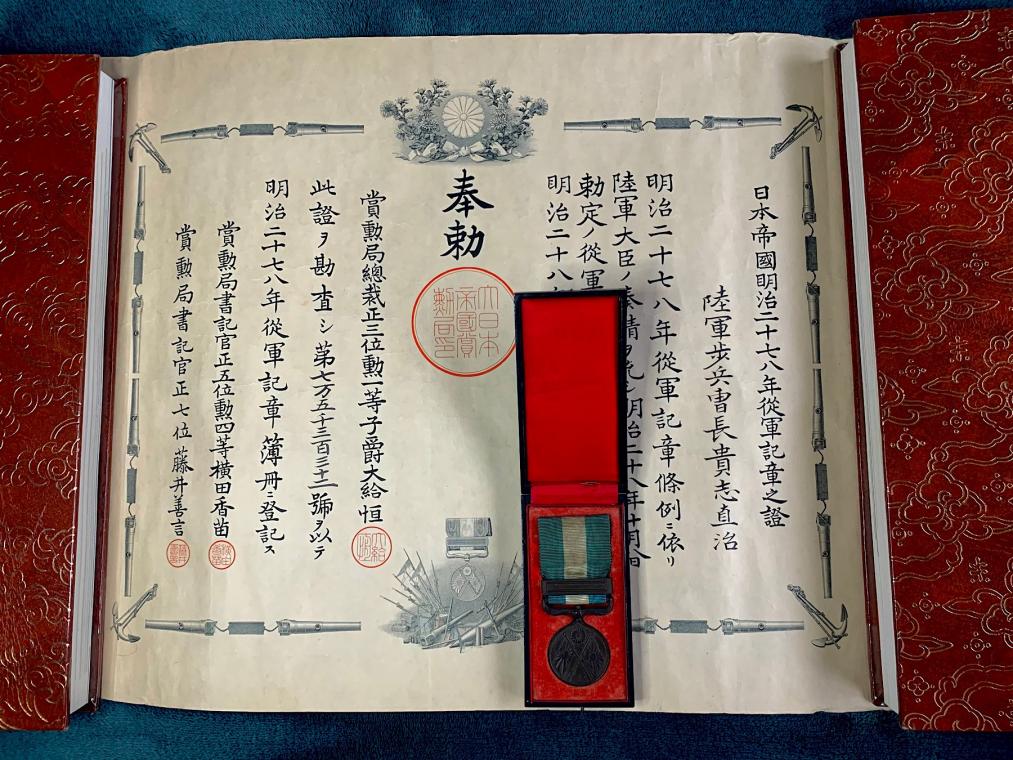 日本帝國明治二十七八年從軍記章之證
陸軍步兵曹長貴志直治
明治二十七八年從軍記章條例ニ依リ
陸軍大臣ノ奏請ヲ允シ明治二十八年十月 日
勅定ノ從軍
明治二十八
奉勅
大日本帝國賞勳局印
賞勳局總裁正三位勳一等子爵大給恒
此證ヲ勘査シ第七万五千三百三十一號ヲ以テ
明治二十七八年從軍記章簿冊ニ登記ス
賞勳局書記官正五位勳四等横田香苗
賞勳局書記官正七位藤井善言